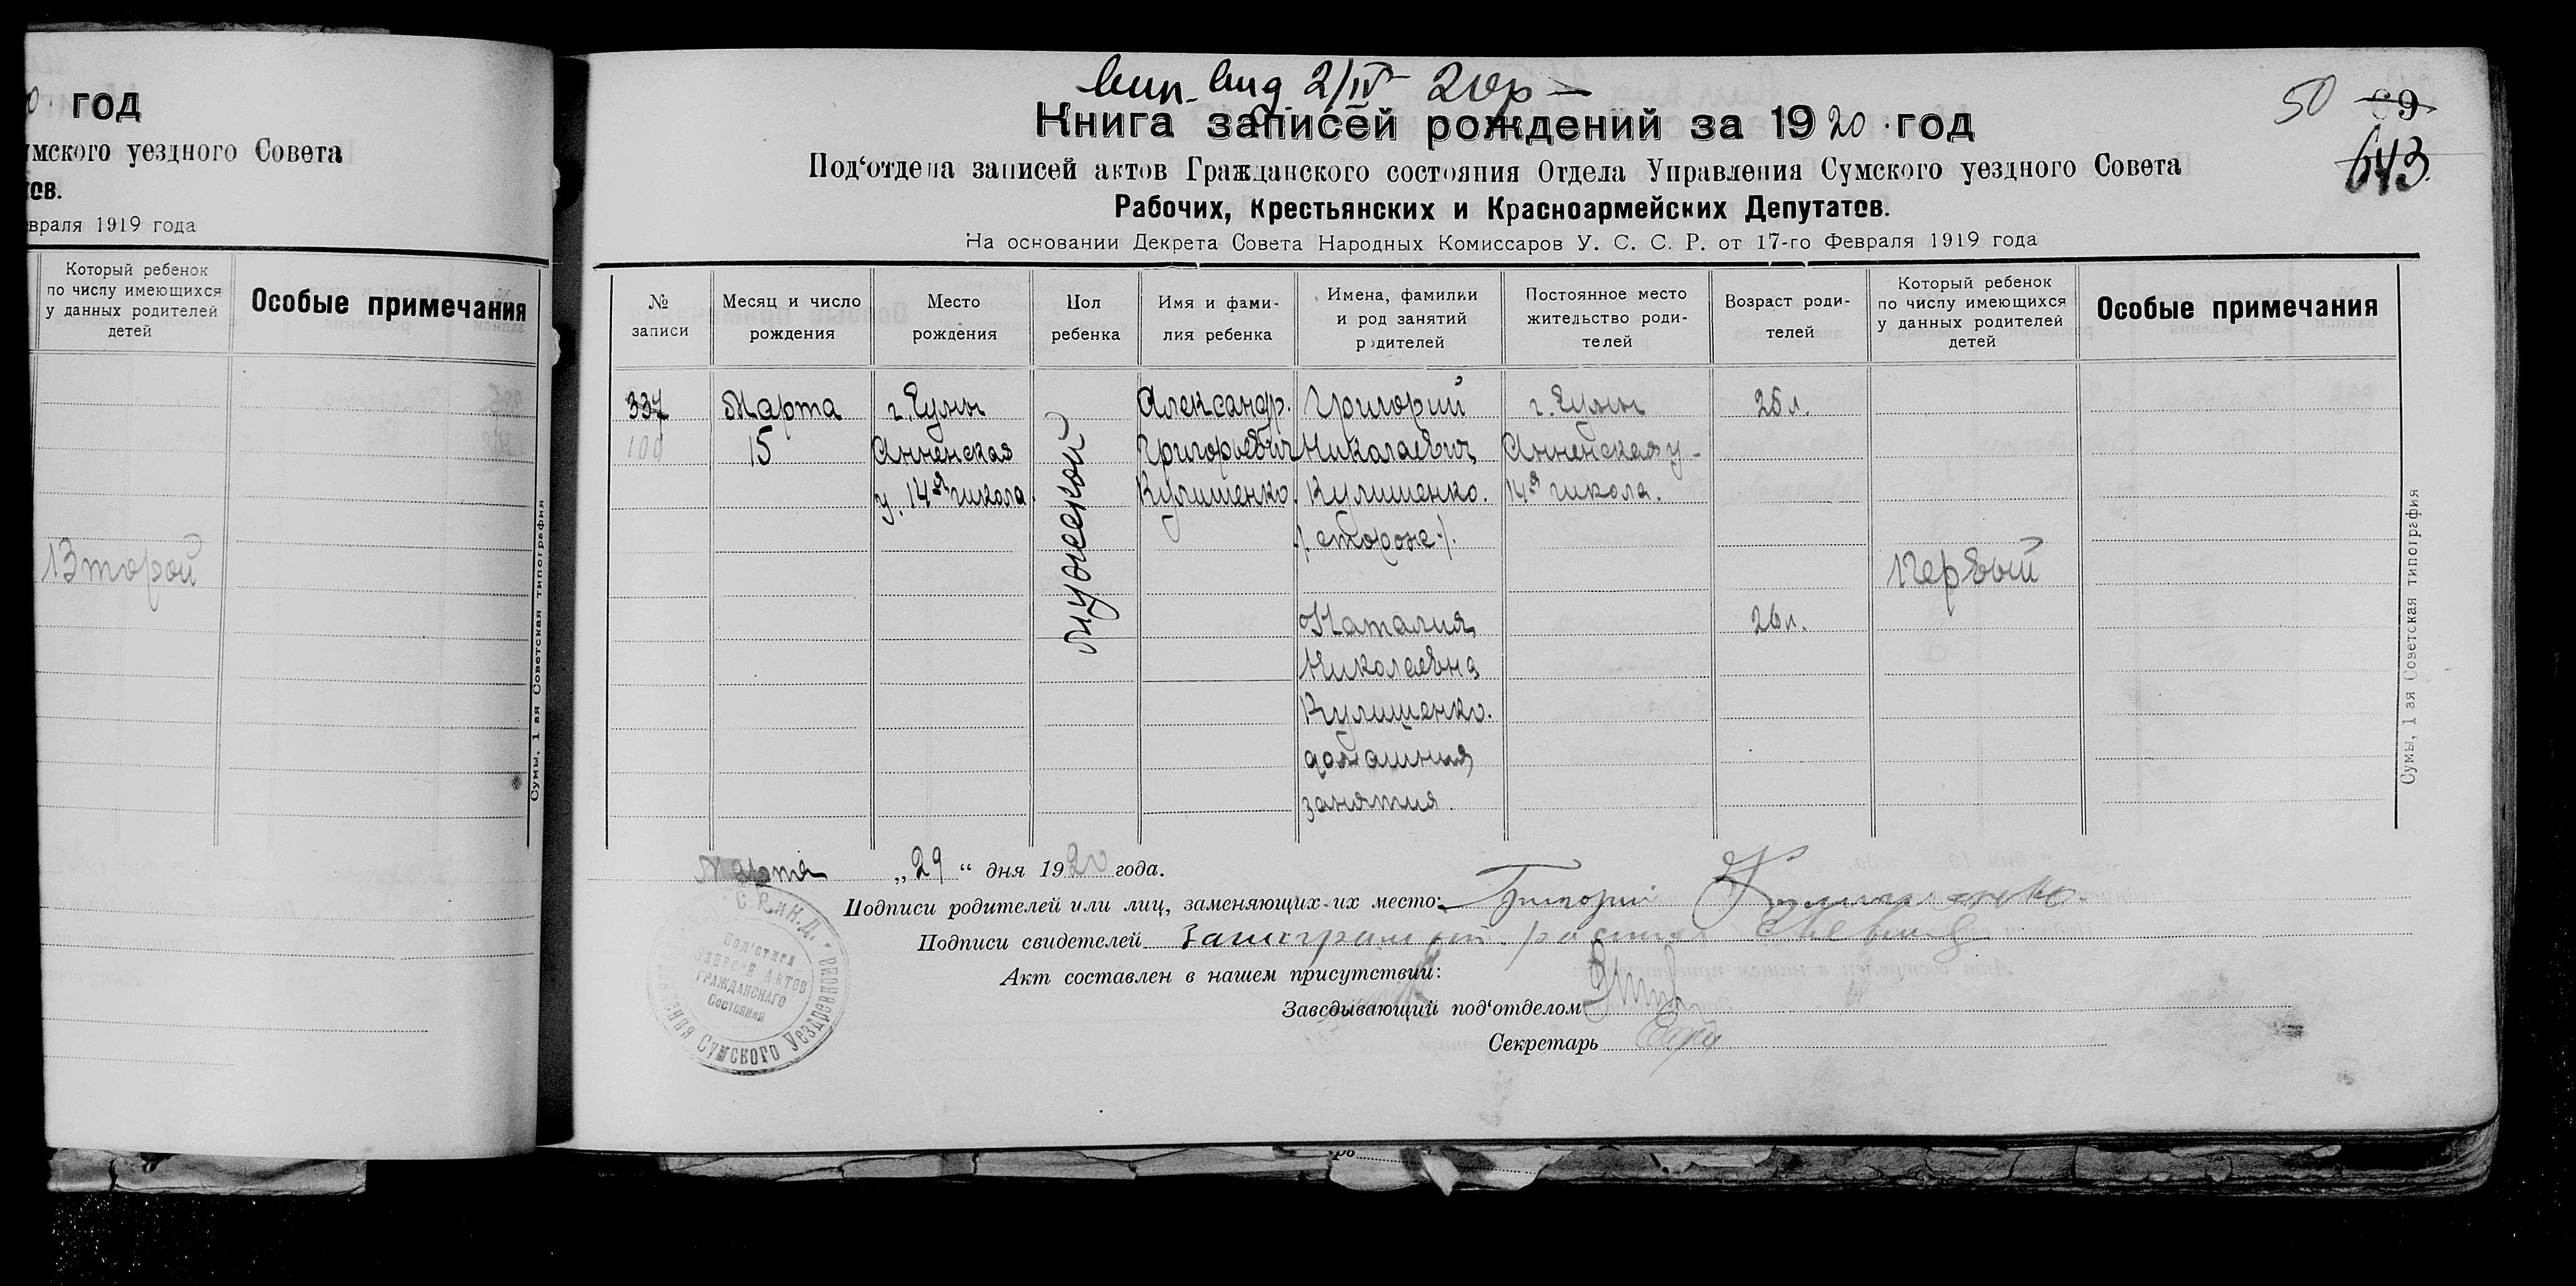 год
умского уездного Совета
тов.
евраля 1919 года
Который ребенок
по числу имеющихся
у данных родителей
детей
Особые примечания
Второй
Сумы, 1 ая Советская типография
вып. вид 2/IV 20р
50 69
643
Книга записей рождений за 1920 год
Под‘отдела записей актов Гражданского состояния Отдела Управления Сумского уездного Совета
Рабочих, Крестьянских и Красноармейских Депутатов.
На основании Декрета Совета Народных Комиссаров У. С. С. Р. от 17-го Февраля 1919 года
№
записи
Месяц и число
рождения
Место
рождения
Пол
ребенка
Имя и фами-
лия ребенка
Имена, фамилии
и род занятий
родителей
Постоянное место
жительство роди-
телей
Возраст роди-
телей
Который ребенок
по числу имеющихся
у данных родителей
детей
Особые примечания
337
100
Марта
15
г. Сумы
Анненская
у. 14я школа.
мужеской
Александр.
Григорьевич
Кулишенко.
Григорий
Николаевич
Кулишенко.
/. сторож ./.
Наталия
Николаевна
Кулишенко.
домашния
занятия.
г. Сумы
Анненская у-
14я школа.
25 л.
26 л.
Первый
Сумы, 1 ая Советская типография
Марта „29“ дня 1920 года.
Подписи родителей или лиц, заменяющих их место: Григорий Кулишенко.
Подписи свидетелей
Акт составлен в нашем присутствии:
Заведывающий под‘отделом
Секретарь
С. Р. и К. Д.
Под‘отдел
Записей Актов
Гражданскаго
Состояния
Сумского Уездревкома